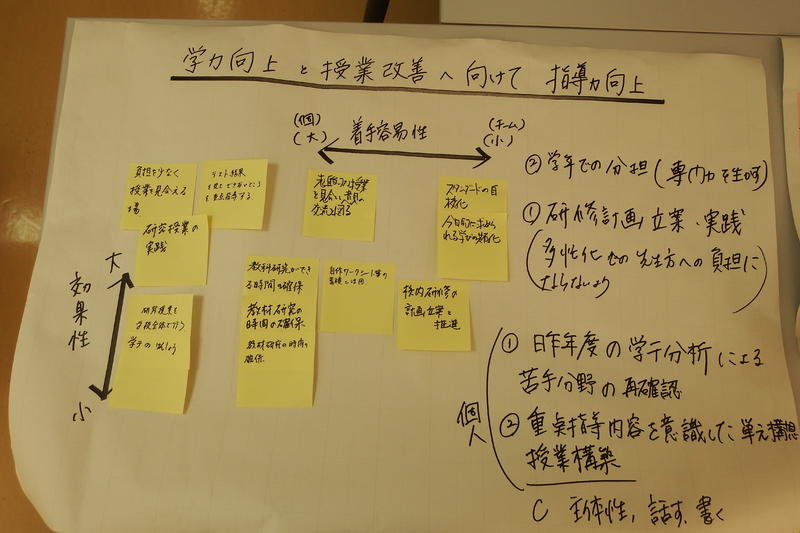 学力向上と授業改善へ向けて 指導力向上
(個)
(大)
着手容易性
(チーム)
(小)
負担を少なく
授業を見合える
場
テスト結果
を見て できないところ
を重点指導する。
研究授業の
実践
授業
と見合い、意見の
交流
スタンダードの目
標化
今日的に求め
られる学び
効果性
大
小
研究授業を
学校全体で行う
学テの
教科研究ができ
る時間の確保
教材研究の
時間の確保
教材研究の時間の
確保
自作ワークシート等の
蓄積と活用
校内研修の
計画立案と
推進
② 学年での分担 (専門力を生かす)
① 研修計画立案・実践
(多忙化での先生方への負担に
ならないよう)
個人
① 昨年度の学テ分析による
苦手分野の再確認
② 重点指導内容を意識した単元構想
授業構築
主体性, 話す, 書く